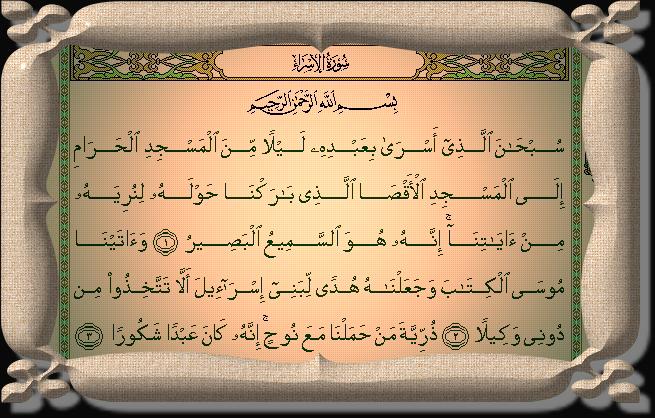 سُورَةُ الإِسْرَاء
بِسْمِ اللَّهِ الرَّحْمَٰنِ الرَّحِيمِ
سُبْحَٰنَ ٱلَّذِىٓ أَسْرَىٰ بِعَبْدِهِۦ لَيْلًا مِّنَ ٱلْمَسْجِدِ ٱلْحَرَامِ
إِلَى ٱلْمَسْجِدِ ٱلْأَقْصَا ٱلَّذِى بَٰرَكْنَا حَوْلَهُۥ لِنُرِيَهُۥ
مِنْ ءَايَٰتِنَآ ۚ إِنَّهُۥ هُوَ ٱلسَّمِيعُ ٱلْبَصِيرُ ١ وَءَاتَيْنَا
مُوسَى ٱلْكِتَٰبَ وَجَعَلْنَٰهُ هُدًى لِّبَنِىٓ إِسْرَٰٓءِيلَ أَلَّا تَتَّخِذُوا۟ مِن
دُونِى وَكِيلًا ٢ ذُرِّيَّةَ مَنْ حَمَلْنَا مَعَ نُوحٍ ۚ إِنَّهُۥ كَانَ عَبْدًا شَكُورًا ٣